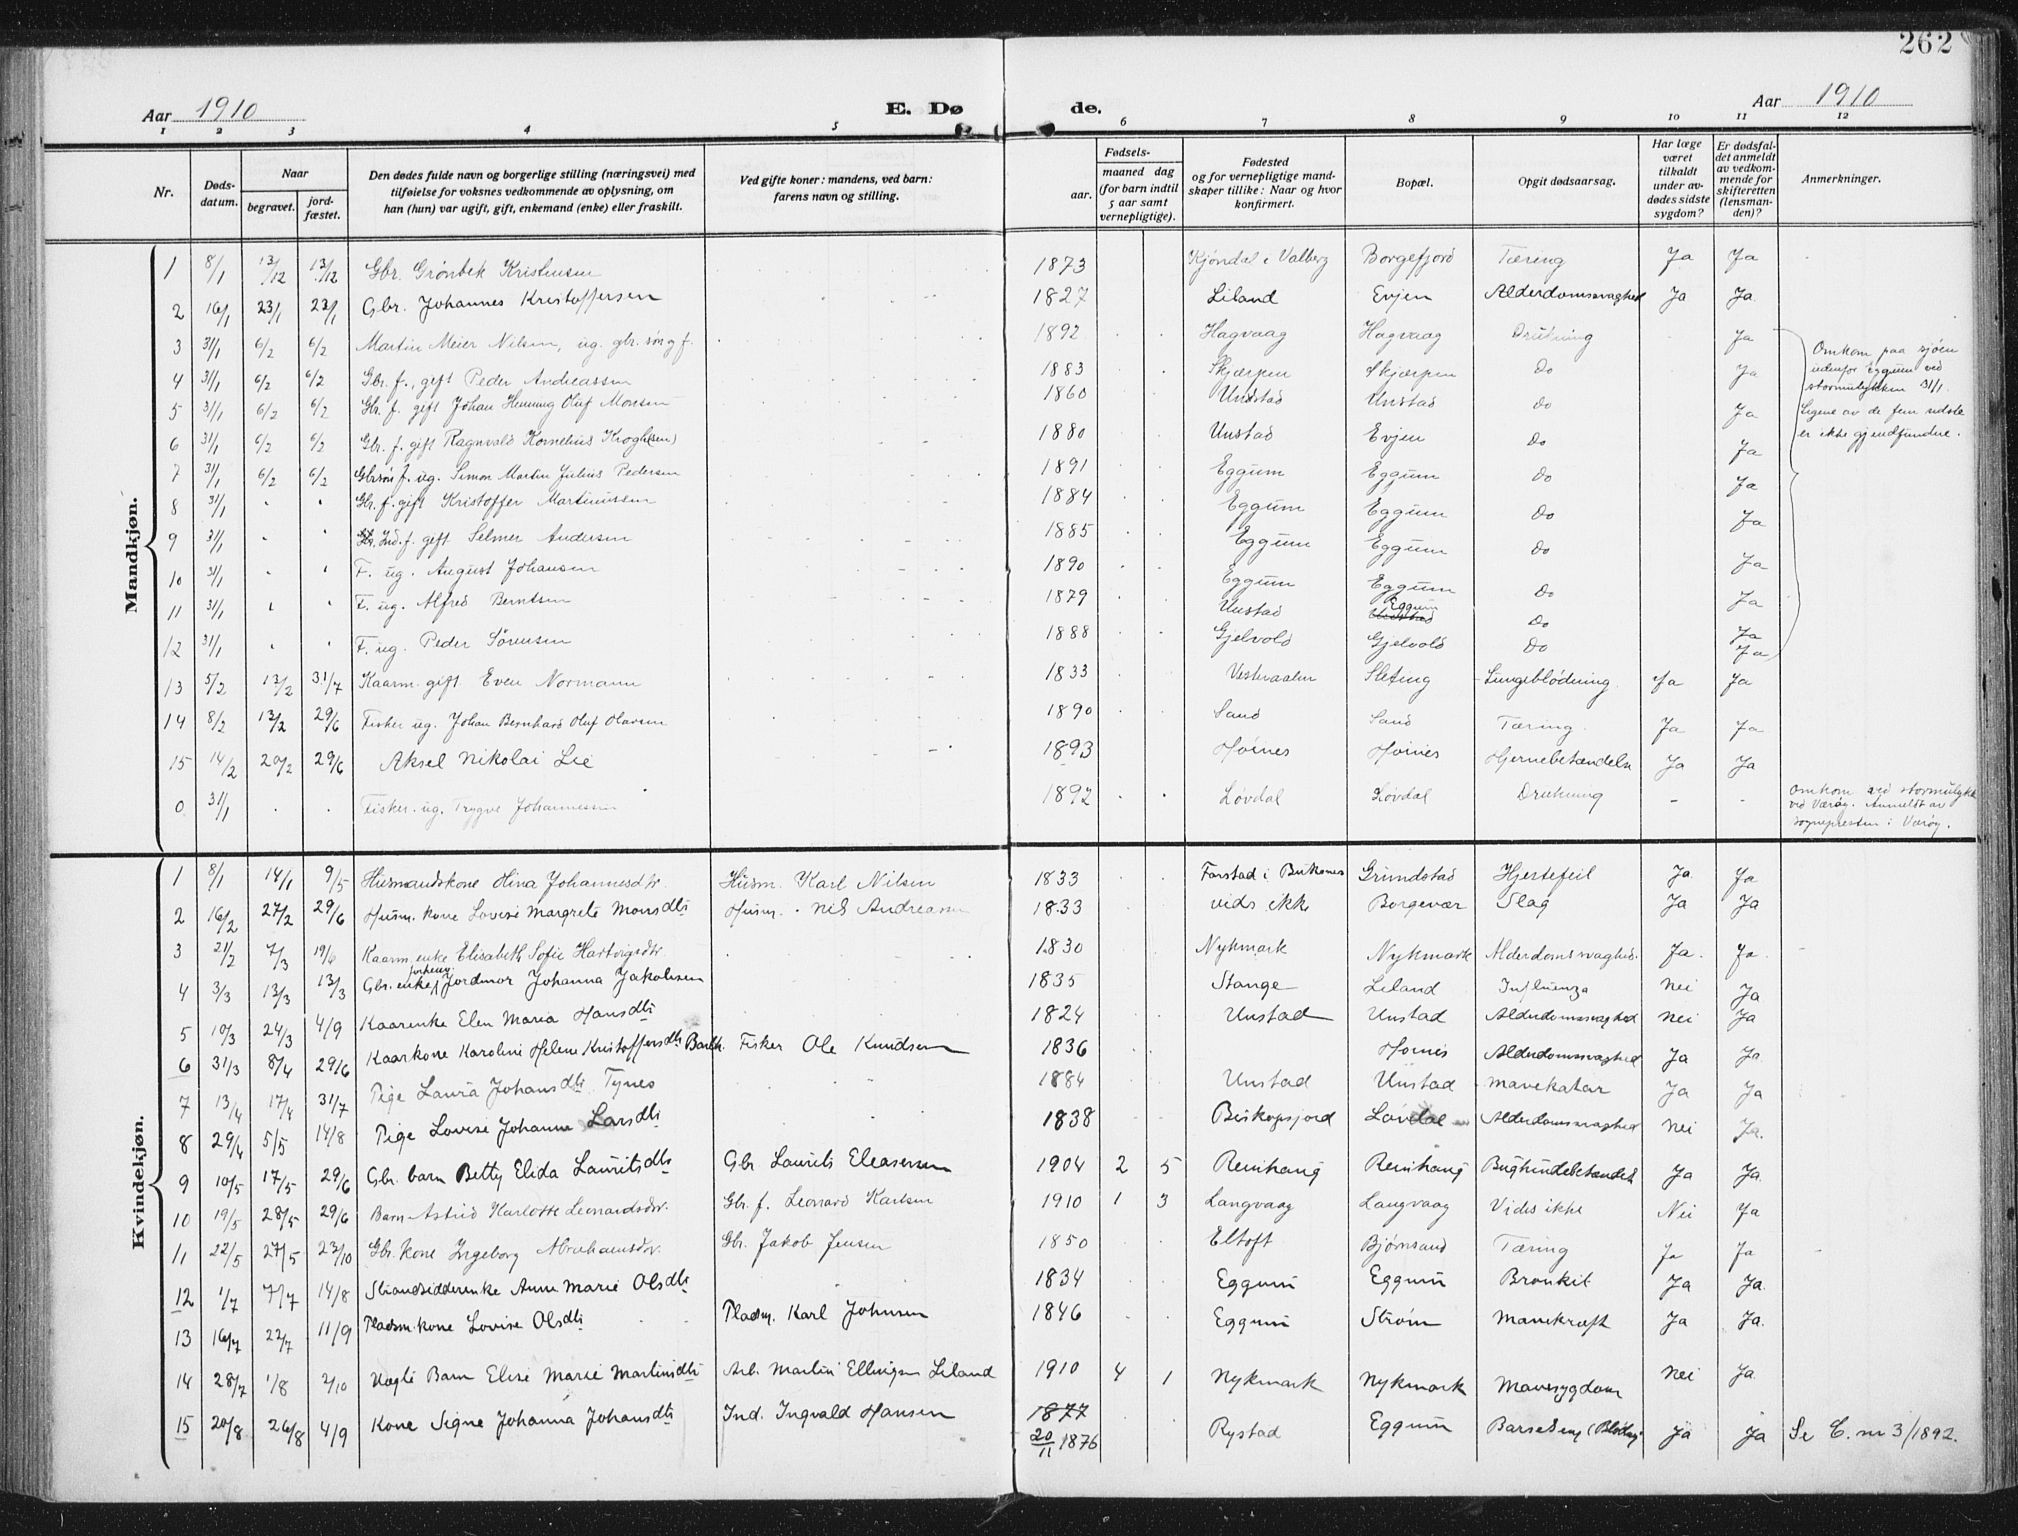 262
Aar 1910 E. Døde. Aar 1910
1 2 3 4 5 6 7 8 9 10 11 12
Nr. Døds-datum. Naar begravet. jord-fæstet. Den dødes fulde navn og borgerlige stilling (næringsvei) med tilføielse for voksnes vedkommende av oplysning, om han (hun) var ugift, gift, enkemand (enke) eller fraskilt. Ved gifte koner: mandens, ved barn: farens navn og stilling. Fødsels- aar. maaned dag (for barn indtil 5 aar samt vernepligtige). Fødested og for vernepligtige mand-skaper tillike: Naar og hvor konfirmert. Bopæl. Opgit dødsaarsag. Har læge været tilkaldt under av-dødes sidste sygdom? Er dødsfal-det anmeldt av vedkom-mende for skifteretten (lensman-den)? Anmerkninger.
Mandkjøn.
1 8/1 13/12 13/12 Gbr. Grönbek Kristensen 1873 Kjöndal i Valberg Borgefjord Tæring Ja Ja
2 16/1 23/1 23/1 Gbr. Johannes Kristoffersen 1827 Liland Evjen Alderdomssvaghed Ja Ja
3 31/1 6/2 6/2 Martin Meier Nilsen, ug. gbr. søn g f. 1892 Hagvaag Hagvaag Drukning Ja Omkom paa sjöen udenfor Eggum ved stormulykken 31/1. Ligene av de fem sidste er ikke gjenfundne.
4 31/1 6/2 6/2 Gbr. f., gift Peder Andreassen 1883 Skjærpen Skjærpen Do Ja
5 31/1 6/2 6/2 Gbr. f. gift Johan Henning Oluf Monsen 1860 Unstad Unstad Do Ja
6 31/1 6/2 6/2 Gbr. f. gift Ragnvald Kornelius Krogh(sen) 1880 Unstad Evjen Do Ja
7 31/1 6/2 6/2 Gbrsøn f. ug. Simon Martin Julius Pedersen 1891 Eggum Eggum Do Ja
8 31/1 " " Gbr. f. gift Kristoffer Martinussen 1884 Eggum Eggum Do Ja
9 31/1 " " Ind. f. gift Selmer Andersen 1885 Eggum Eggum Do Ja
10 31/1 " " F. ug. August Johansen 1890 Eggum Eggum Do Ja
11 31/1 " " F. ug. Alfred Berntsen 1879 Unstad Eggum Unstad Do Ja
12 31/1 " " F. ug. Peder Sörensen 1888 Gjelvold Gjelvold Do Ja
13 5/2 13/2 31/7 Kaarm. gift. Even Normann 1833 Vesteraalen Sletteng Lungeblödning Ja Ja
14 8/2 13/2 29/6 Fisker ug. Johan Bernhard Oluf Olavsen 1890 Sand Sand Tæring Ja Ja
15 14/2 20/2 29/6 Aksel Nikolai Lie 1893 Hoines Hoines Hjernebetændelse Ja Ja
0 31/1 Fisker. ug. Trygve Johannessen 1892 Lövdal Lövdal Drukning - - Omkom ved stormulykke ved Værøy. Anmeldt av sognepresten i Værøy.
Kvindekjøn.
1 8/1 14/1 9/5 Husmandskone Hina Johannesdtr. Husm. Karl Nilsen 1833 Farstad i Buksnes Grundstad Hjertefeil Ja Ja
2 16/2 27/2 29/6 Husm. kone Lovise Margrete Monsdtr Husm. Nils Andreasen 1833 vides ikke Borgevær Slag Ja Ja
3 21/2 7/3 19/6 Kaarm. enke Elisabeth Sofie Hartvigsdtr. 1830 Nykmark Nykmark Alderdomssvaghed. Ja. Ja.
4 3/3 13/3 13/3 Gbr. enke, forhenv. Jordmor Johanna Jakobsen 1835 Stange Liland Influenza Nei Ja
5 10/3 24/3 4/9 Kaarenke Elen Maria Hansdtr 1824 Unstad Unstad Alderdomssvaghed Nei Ja
6 31/3 8/4 29/6 Kaarkone Karoline Helene Kristoffersdtr Barth. Fisker Ole Knudsen 1836 Hoines Alderdomssvaghed Ja Ja.
7 13/4 17/4 31/7 Pige Laura Johansdtr. Tynes 1884 Unstad Unstad Mavekatar Ja Ja
8 29/4 5/5 14/8 Pige Lovise Johanne Larsdtr 1838 Biskopsjord Lövdal Alderdomssvaghed Nei Ja.
9 10/5 17/5 29/6 Gbr. barn Betty Elida Lauritsdtr Gbr. Laurits Eleasersen 1904 2 5 Reinhaug Reinhaug Bughindebetændels Ja Ja.
10 19/5 28/5 29/6 Barn Astrid Karlotte Leonardsdtr. Gbr. f. Leonard Karlsen 1910 1 3 Langvaag Langvaag Vides ikke Nei Ja
11 22/5 27/5 23/10 Gbr. kone Ingeborg Abrahamsdtr. Gbr. Jakob Jensen 1850 Eltoft Bjørnsand Tæring Ja Ja
12 1/7 7/7 14/8 Strandsidderenke Anne Marie Olsdtr 1834 Eggum Eggum Bronkit Ja Ja.
13 16/7 22/7 11/9 Pladsm. kone Lovise Olsdtr Pladsm. Karl Johnsen 1846 Eggum Ström Mavekræft Ja Ja.
14 28/7 1/8 2/10 Uægte Barn Elise Marie Martinsdtr Arb. Martin Ellingsen Liland 1910 4 1 Nykmark Nykmark Mavesygdom Nei Ja
15 20/8 26/8 4/9 Kone Signe Johanna Johansdtr Ind. Ingvald Hansen 1877 20/11 1876 Rystad Eggum Barselseng (Blödng. Ja Ja Se C. nr 3/1892.